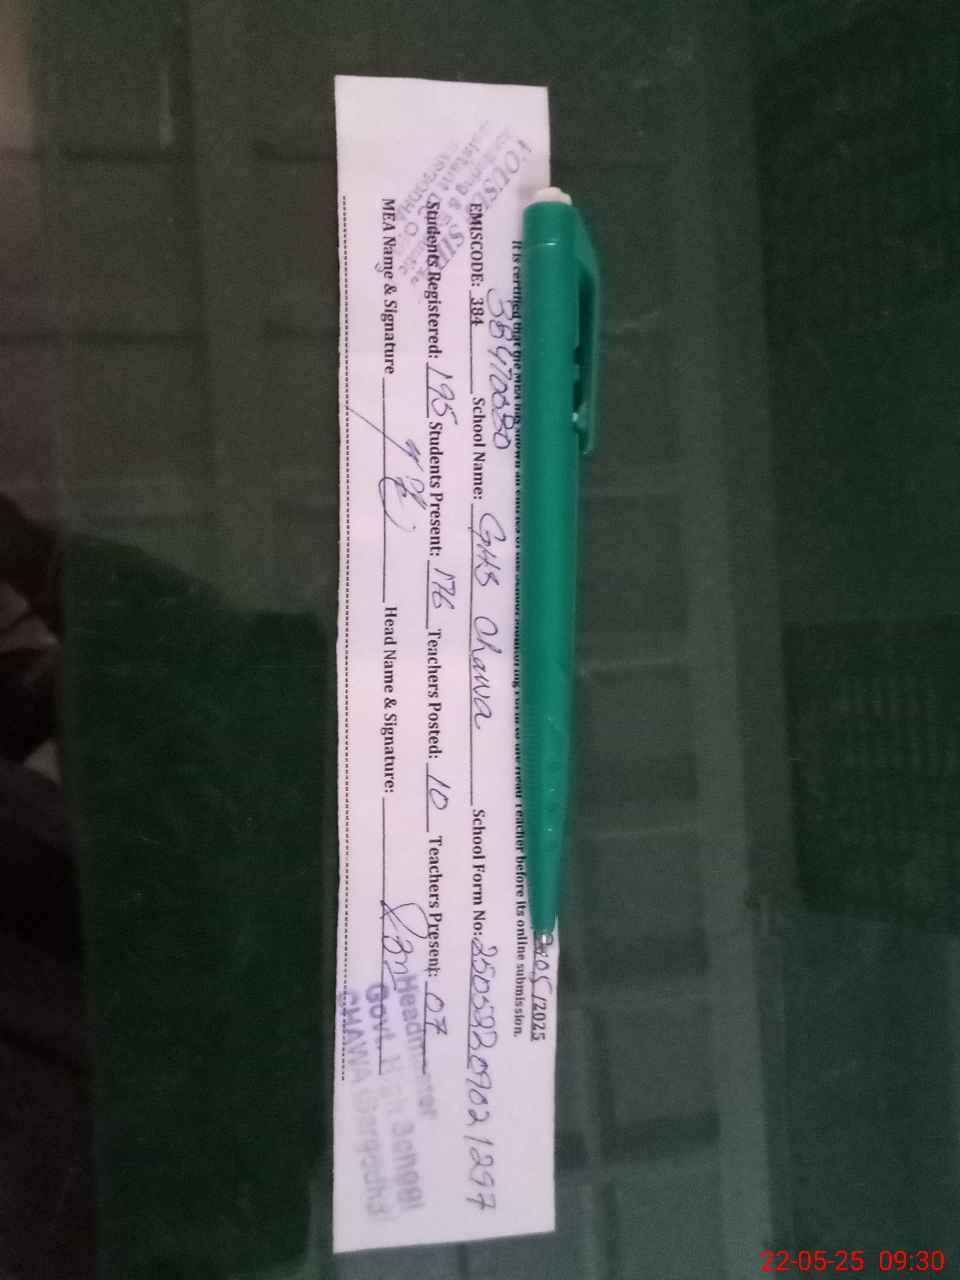 05/2025
It is certified that the MEA has shown all entries of the School Monitoring Form to the Head Teacher before its online submission.
38470030
EMISCODE: 384 School Name: GHS Chawa School Form No: 25052209021297
Students Registered: 195 Students Present: 176 Teachers Posted: 10 Teachers Present: 07
MEA Name & Signature Head Name & Signature:
Headmaster
Govt. High School
CHAWA (Sargodha)
22-05-25 09:30